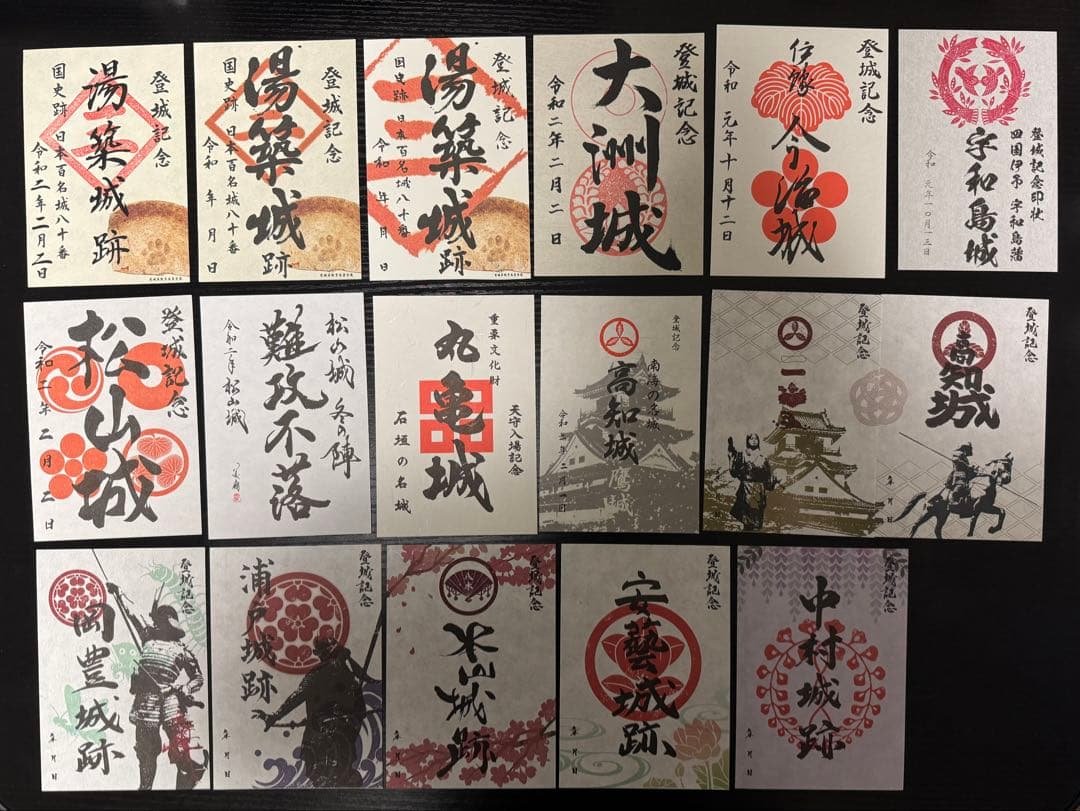 登城記念
湯築城跡
国史跡 日本百名城八十番
令和二年二月二日
登城記念
湯築城跡
国史跡 日本百名城八十番
令和 年 月 日
登城記念
湯築城跡
国史跡 日本百名城八十番
令和 年 月 日
登城記念
大洲城
令和二年二月二日
登城記念
伊豫
今治城
令和 元年十月十二日
登城記念印状
四国伊予 宇和島藩
宇和島城
令和 元年一〇月一三日
登城記念
松山城
令和二年二月二日
松山城 冬の陣
難攻不落
令和二年 松山城
重要文化財
丸亀城
天守入場記念
石垣の名城
登城記念
南海の名城
高知城
鷹城
令和二年二月一日
登城記念
年月日
登城記念
高知城
年月日
登城記念
岡豊城跡
年月日
登城記念
浦戸城跡
年月日
登城記念
本山城跡
年月日
登城記念
安藝城跡
年月日
登城記念
中村城跡
年月日